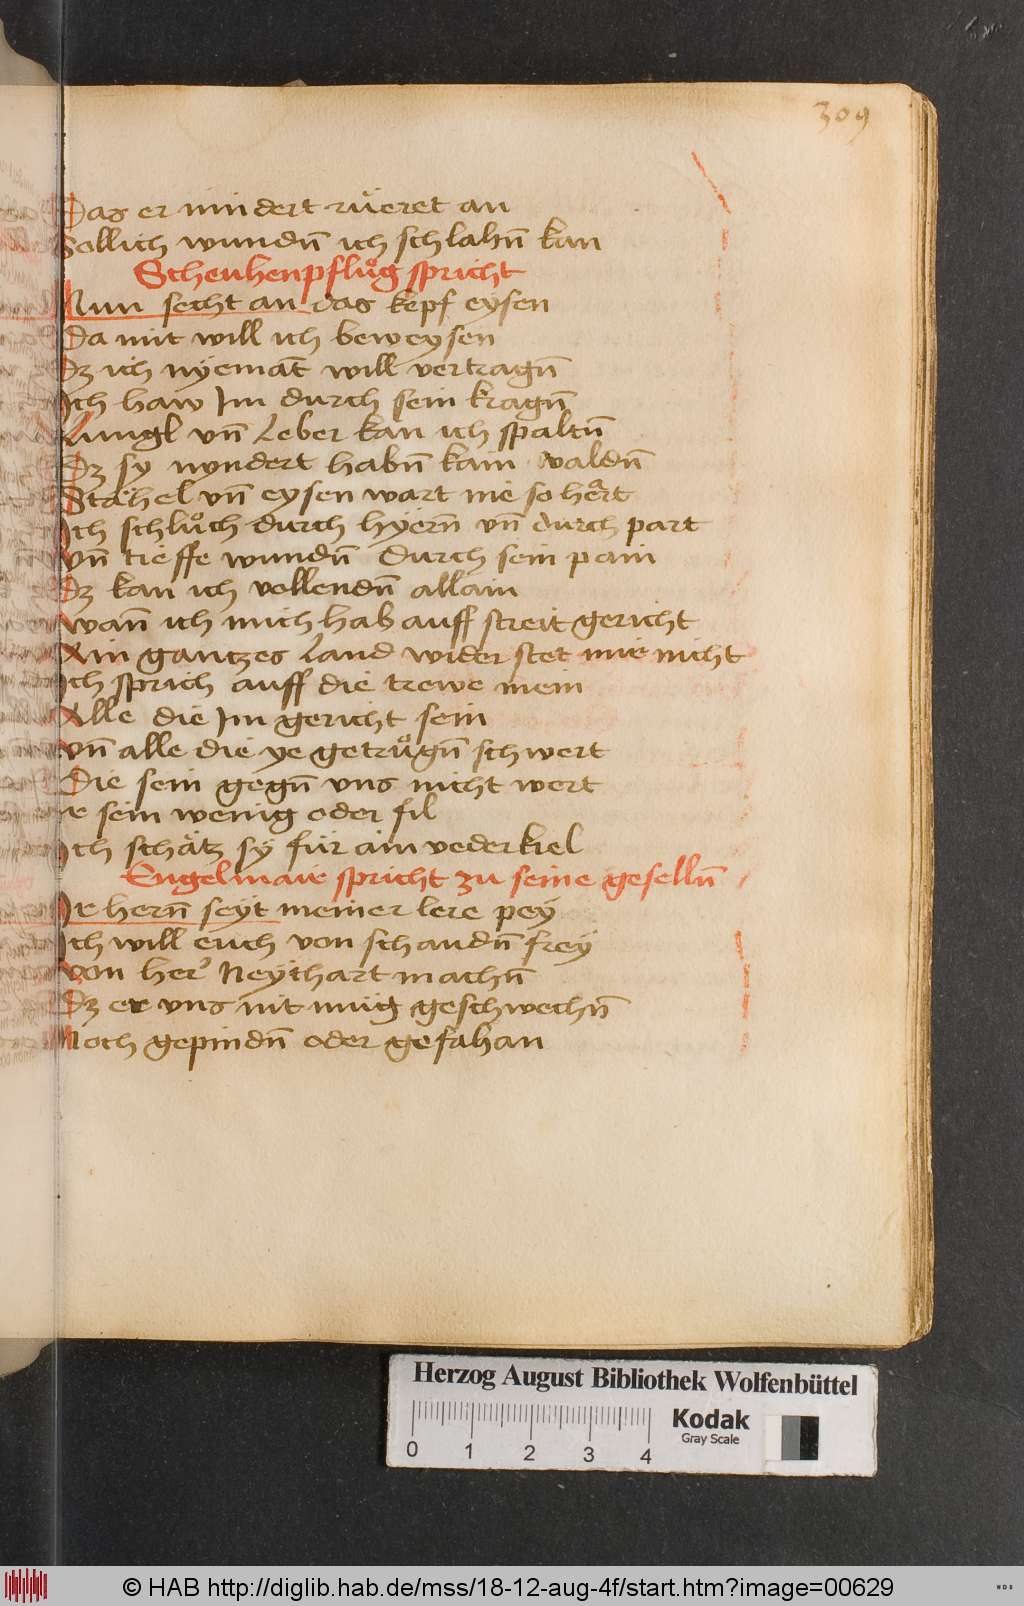 309
Das er nindert rüeret an
Sollich wundn̄ ich schlahn̄ kan
Scheuhenpflůg spricht
Nun secht an das kepf eysen
Da mit will ich beweysen
Dz ich nyemāt will vertragn̄
Ich haw Im durch sein kragn̄
Lungl vn̄ Leber kan ich spaltn̄
Dz sy nyndert habn̄ kain waldn̄
Stähel vn̄ eysen wart nie so hert
Ich schlůch durch hyern̄ vn̄ durch part
Vn̄ tieffe wundn̄ Durch sein pain
Dz kan ich vollendn̄ allain
Wan̄ ich mich hab auff streit gericht
Ain gantzes Land wider stet mir nicht
Ich sprich auff die trewe mein
Alle die Im gericht sein
Vn̄ alle die ye getrůgn̄ schwert
Die sein gegn̄ vns nicht wert
Ir sein wenig oder fil
Ich schätz sy für ain vederkiel
Engelmair spricht zu seine geselln̄
Ir hern̄ seyt meiner lere pey
Ich will euch von schandn̄ frey
Von her Neythart machn̄
Dz er vns nit müg geschwechn̄
Noch gepindn̄ oder gefahan
Herzog August Bibliothek Wolfenbüttel
Kodak
Gray Scale
0 1 2 3 4
© HAB http://diglib.hab.de/mss/18-12-aug-4f/start.htm?image=00629